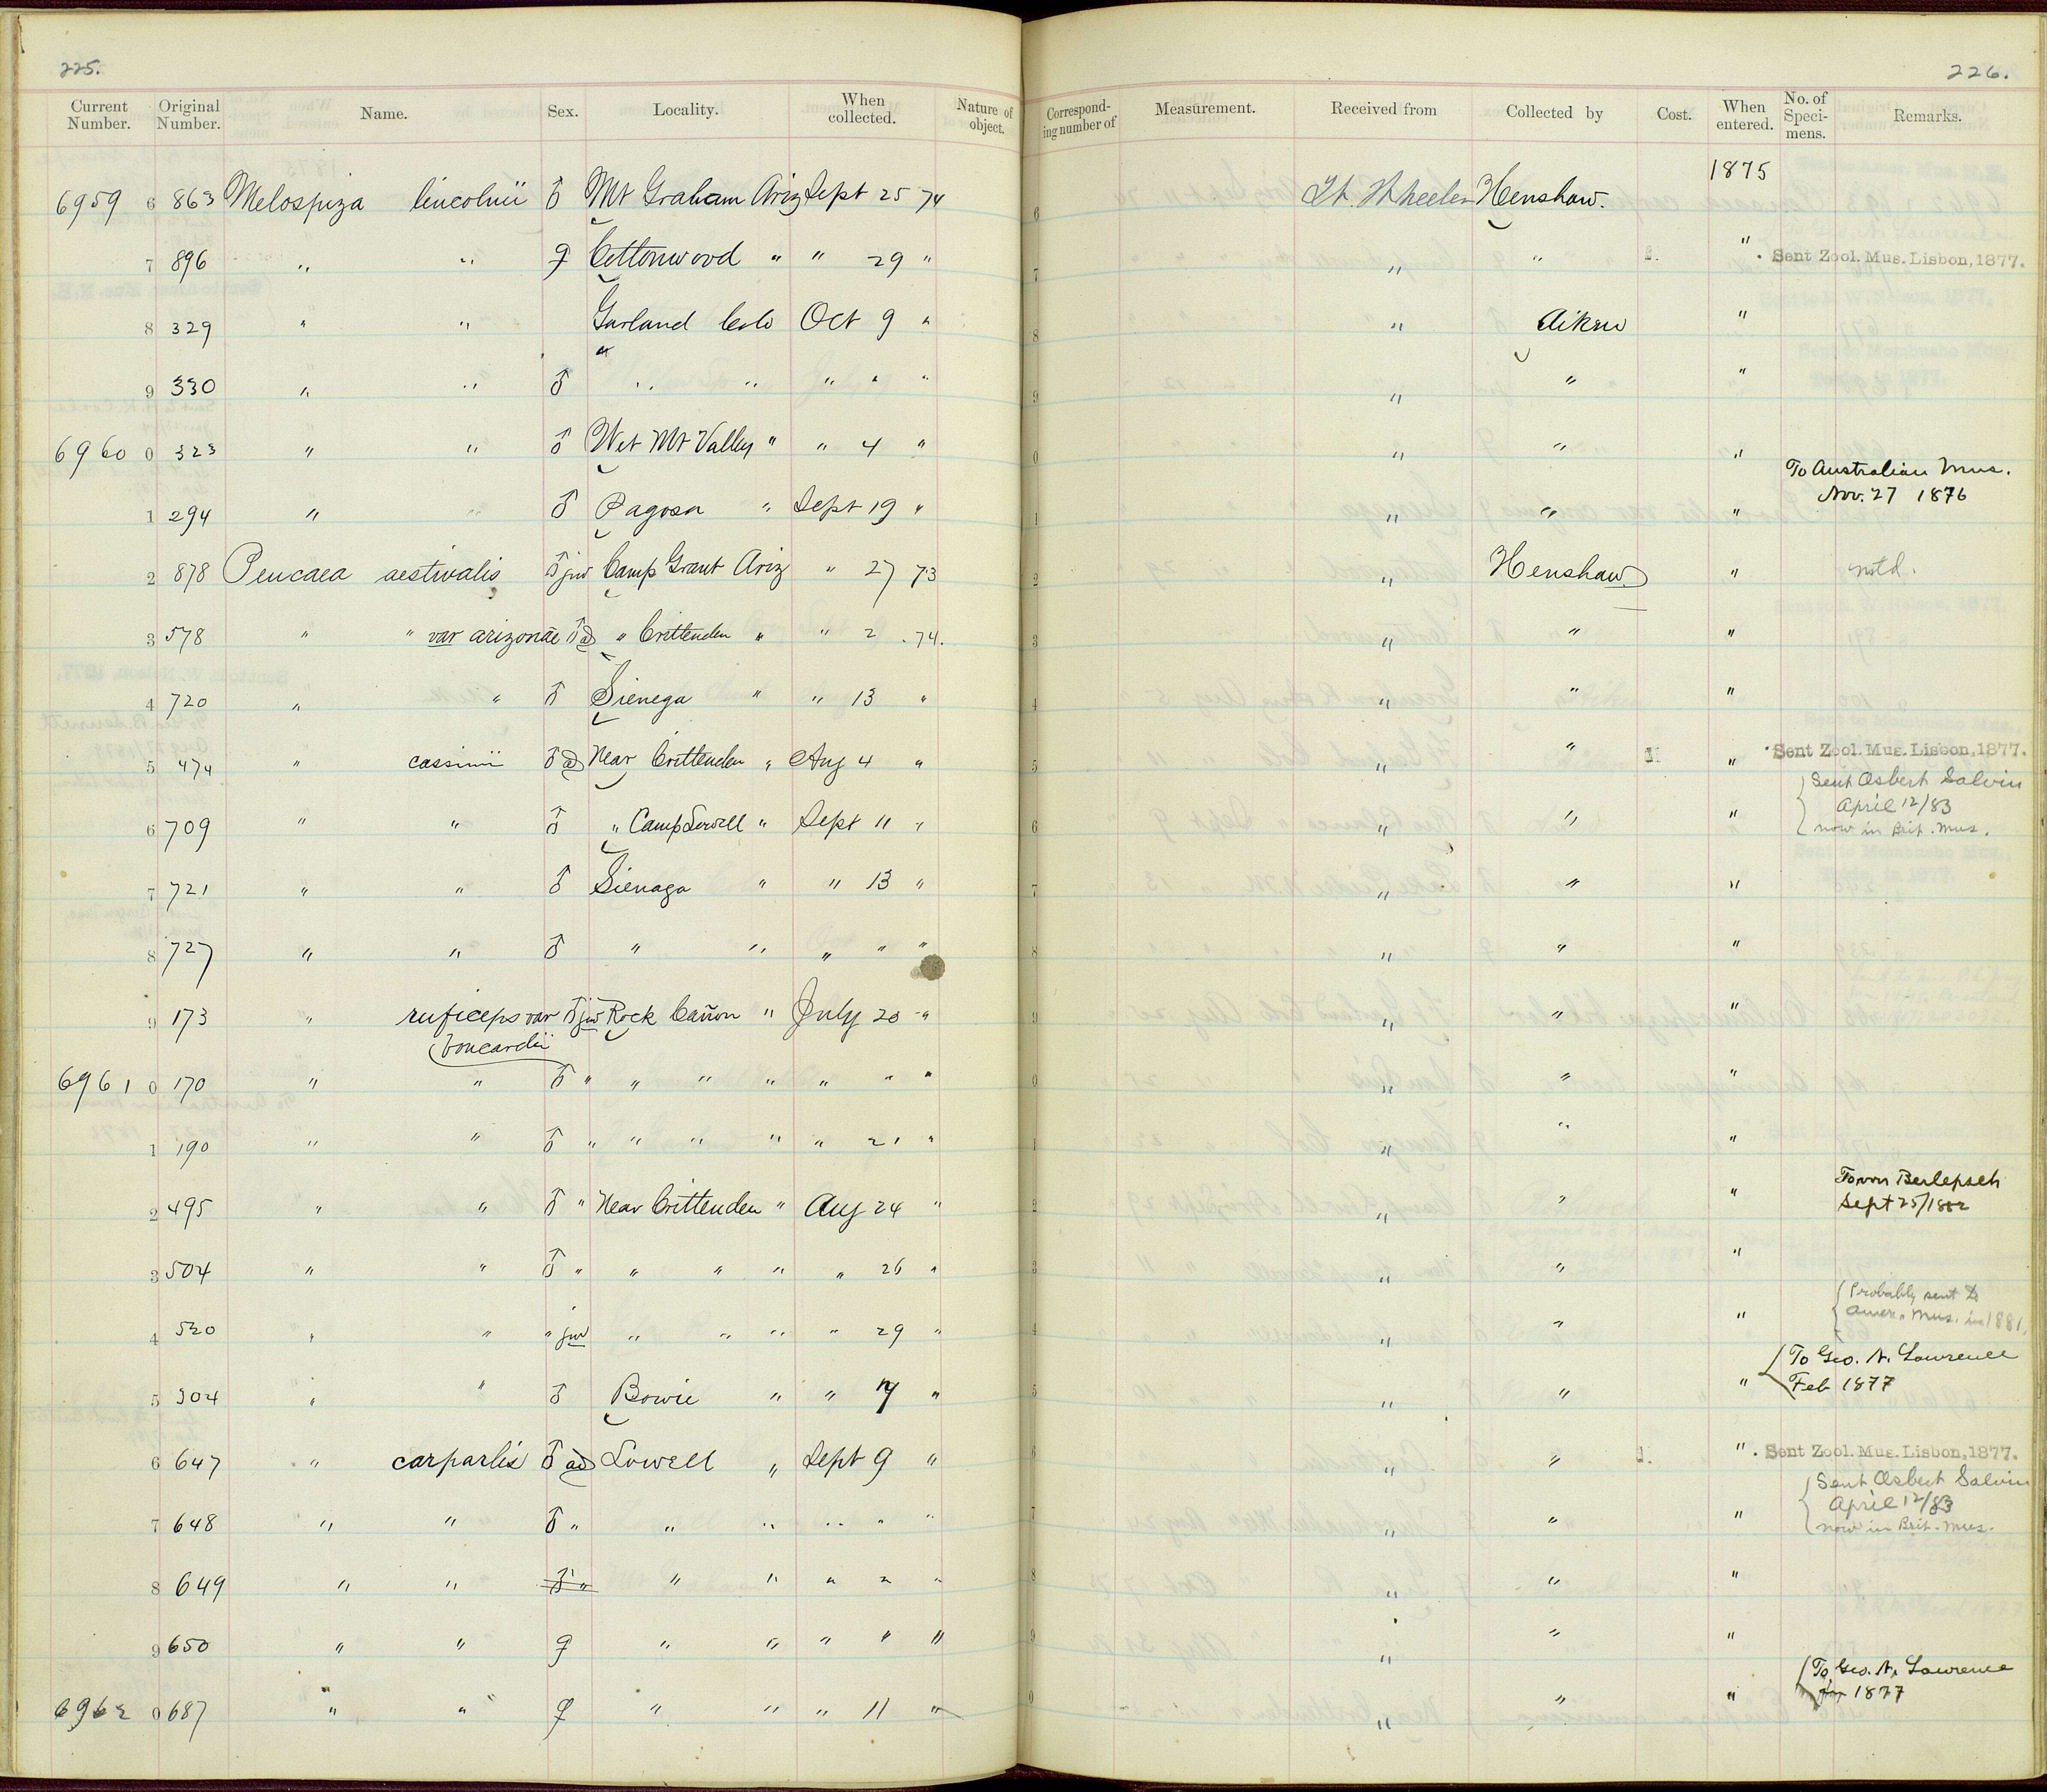 225.
226.
Current Number. Original Number. Name. Sex. Locality. When collected. Nature of object. Corresponding number of Measurement. Received from Collected by Cost. When entered. No. of Specimens. Remarks.
1875
6959 6 863 Melospiza lincolnii ♂ Mt Graham Ariz Sept 25 74 6 Lt. Wheeler Henshaw.
7 896 " " ♀ Cottonwood " " 29 " 7 " " " Sent Zool. Mus. Lisbon, 1877.
8 329 " " Garland Colo Oct 9 " 8 " Aiken "
9 330 " " ♂ " " " " " 9 " " "
6960 0 323 " " ♂ Wet Mt Valley " " 4 " 0 " " "
To Australian Mus.
Nov. 27 1876
1 294 " " ♂ Pagosa " Sept 19 " 1 " " "
2 878 Peucaea aestivalis ♂ juv Camp Grant Ariz " 27 73 2 " Henshaw " notd.
3 578 " " var arizonae ♂ ad " Crittenden " " 2 .74. 3 " " "
4 720 " " ♂ Sienega " " 13 " 4 " " "
5 474 " cassinii ♂ ad Near Crittenden " Aug 4 " 5 " " " Sent Zool. Mus. Lisbon, 1877.
Sent Osbert Salvin
April 12/83
now in Brit. Mus.
6 709 " " ♂ " Camp Lowell " Sept 11 " 6 " " "
7 721 " " ♂ Sienaga " " 13 " 7 " " "
8 727 " " ♂ " " " " " 8 " " "
9 173 " ruficeps var ♂ juv Rock Cañon " July 20 " 9 " " "
boucardii
6961 0 170 " " ♂ " " " " " " " 0 " " "
1 190 " " ♂ " " " " " 21 " 1 " " "
2 495 " " ♂ " Near Crittenden " Aug 24 " 2 " " "
To von Berlepsch
Sept 25/1882
3 504 " " ♂ " " " " " 26 " 3 " " "
4 520 " " " juv " " " " 29 " 4 " " "
Probably sent to
Amer. Mus. in 1881.
5 504 " " ♂ Bowie " " 19 " 5 " " "
To Geo. N. Lawrence
Feb 1877
6 647 " carpalis ♂ ad Lowell " Sept 9 " 6 " " " Sent Zool. Mus. Lisbon, 1877.
Sent Osbert Salvin
April 12/83
now in Brit. Mus.
7 648 " " ♂ " " " " " " 7 " " "
8 649 " " ♂ " " " " " " 8 " " "
9 650 " " ♀ " " " " " 9 " " "
To Geo. N. Lawrence
1877
6962 0 687 " " ♀ " " " 11 " 0 " " "